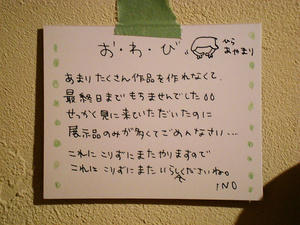 お・わ・び
から
あやまり
あまりたくさん作品を作れなくて、
最終日までもちませんでした
せっかく見に来ていただいたのに
展示品のみが多くてごめんなさい…
これにこりずにまたやりますので
これにこりずにまたいらしてくださいね。
INO